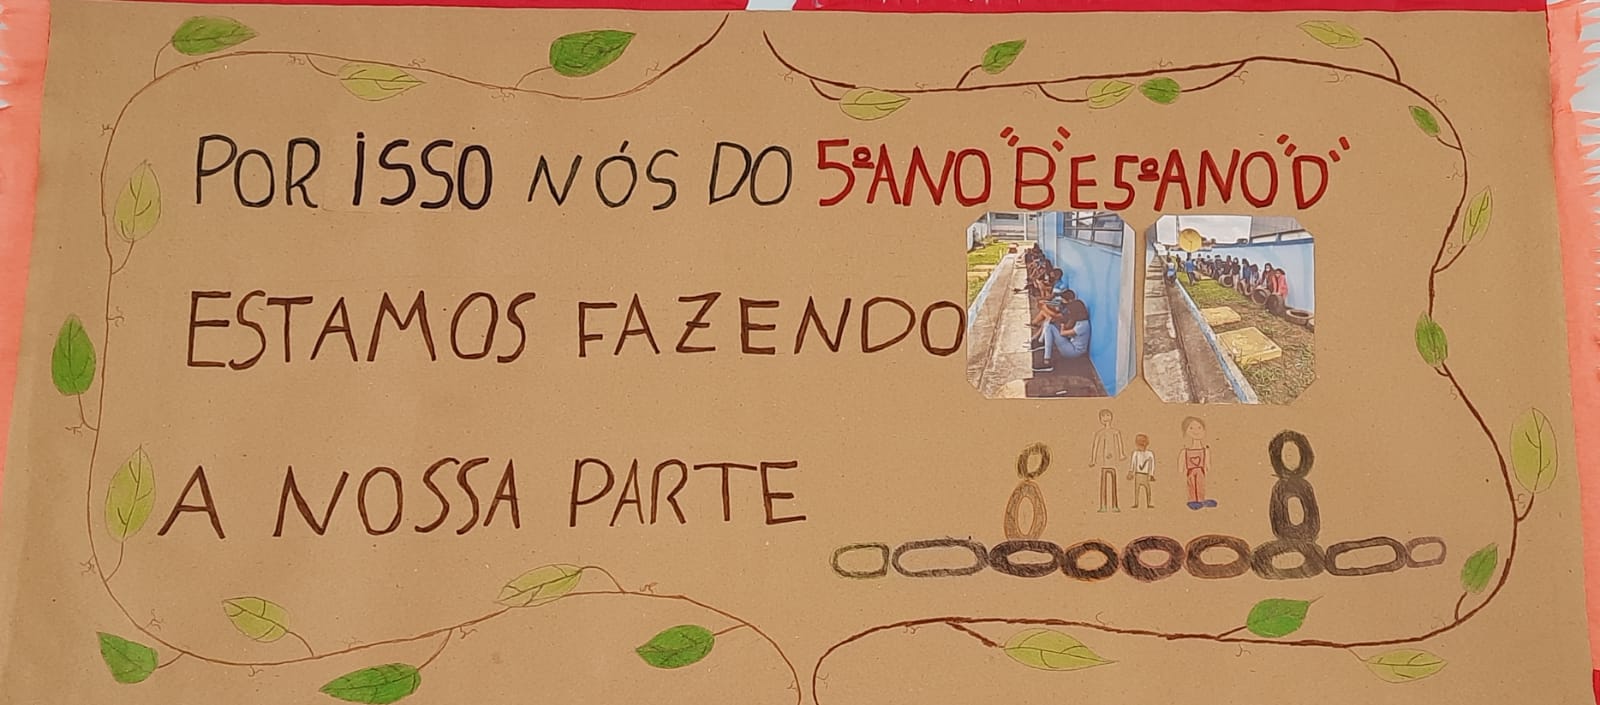 POR ISSO NÓS DO 5º ANO "B" E 5º ANO "D"
ESTAMOS FAZENDO
A NOSSA PARTE